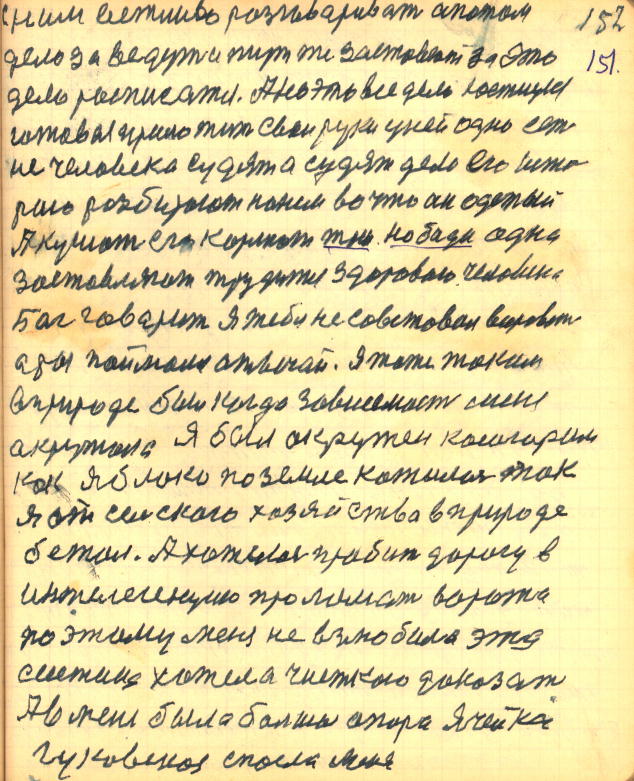 с ним сетшиво разговариват а потом 152
дело заведут и тит ти заставют за это 151.
дело росписати. А на это все дело юстицея
готовая приложит свои руки у ней одно сет
не человека судят а судят дело его
раю розбирают поним во что он одетый
А кушат его кормют но бади одна
заставляют трудитя здоровою человека
Баг говарит я тебя не советовал вороват
а ты поймалея отвечай. Я тоже таким
в природе был когда зависемаст меня
акружала Я был окружен косогорам
как яблоко по земле катился так
я от селского хозяйства в природе
бежал. А хотелося пробит дорогу в
интелегенцию проломат ворота
поэтому меня не взлюбила эта
система хотела чисткою доказат
А в мене была болша опора Ячейка
Гуковская спасла меня